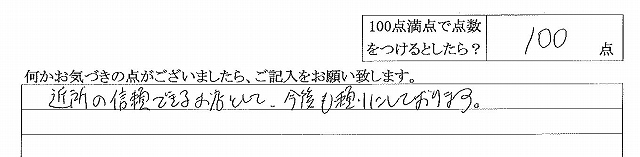 100点満点で点数
をつけるとしたら？
100 点
何かお気づきの点がございましたら、ご記入をお願い致します。
近所の信頼できるお店として、今後も頼りにしております。